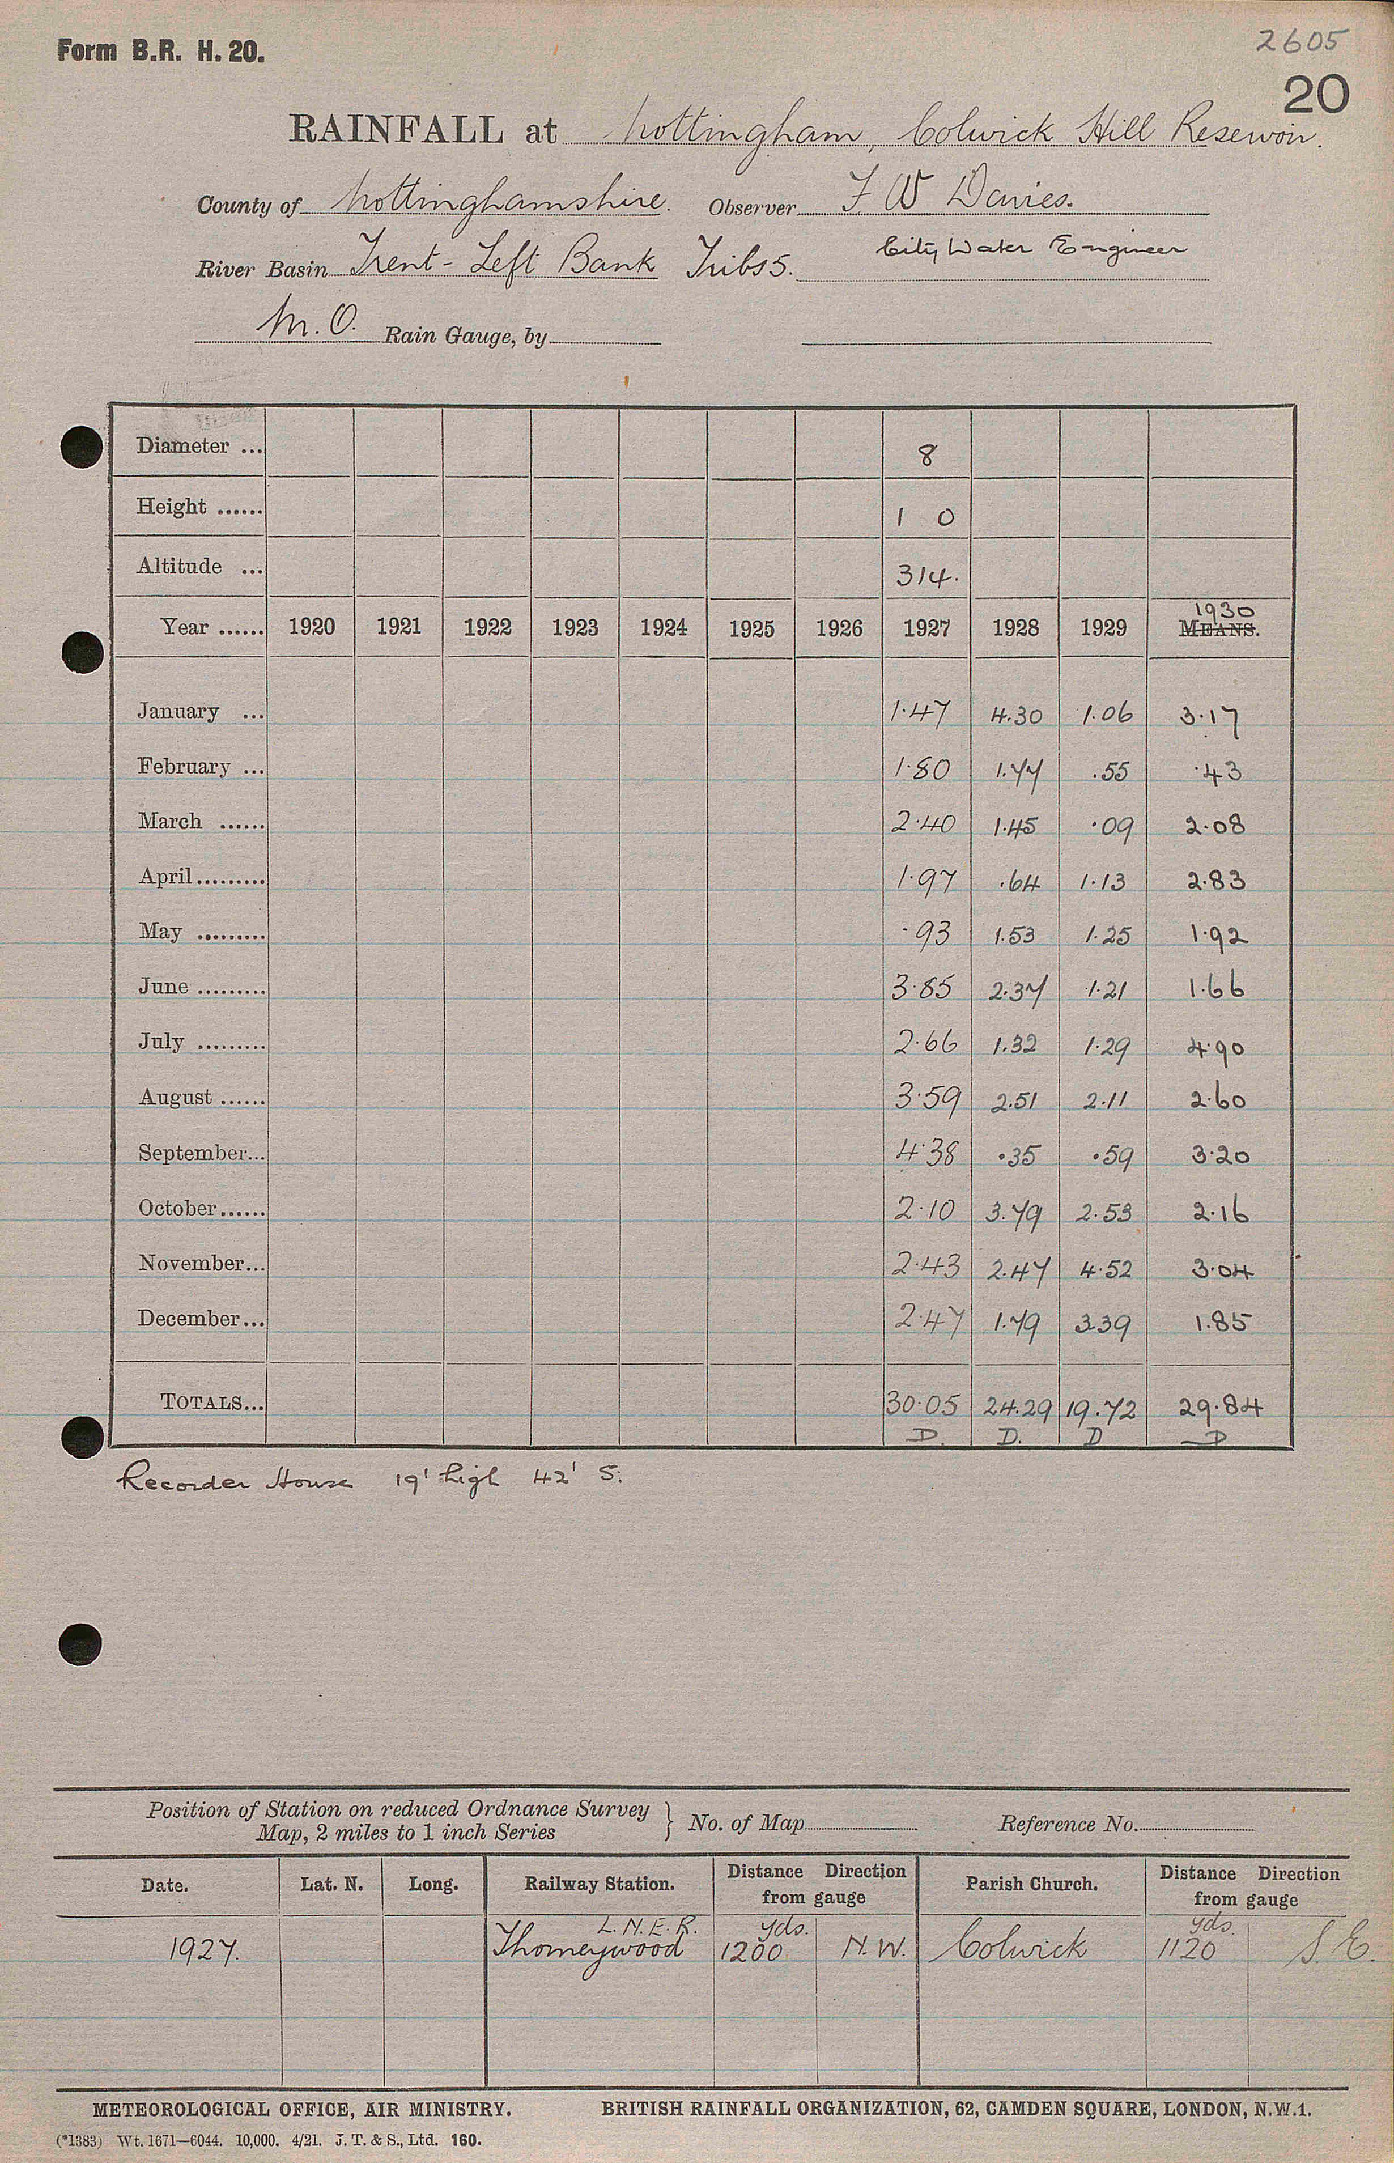 2605
Form B.R. H. 20.
20
RAINFALL at Nottingham, Colwick Hill Reservoir.
County of Nottinghamshire. Observer F W Davies.
River Basin Trent - Left Bank Tribs 5. City Water Engineer
M.O. Rain Gauge, by
Diameter ... 8
Height ...... 1 0
Altitude ... 314.
Year ...... 1920 1921 1922 1923 1924 1925 1926 1927 1928 1929 1930 MEANS.
January ... 1.47 4.30 1.06 3.17
February ... 1.80 1.77 .55 .43
March ...... 2.40 1.45 .09 2.08
April ......... 1.97 .64 1.13 2.83
May ......... .93 1.53 1.25 1.92
June ......... 3.85 2.37 1.21 1.66
July ......... 2.66 1.32 1.29 4.90
August ...... 3.59 2.51 2.11 2.60
September... 4.38 .35 .59 3.20
October ...... 2.10 3.79 2.53 2.16
November... 2.43 2.47 4.52 3.04
December... 2.47 1.79 3.39 1.85
TOTALS... 30.05 24.29 19.72 29.84
D. D. D D
Recorder House 19' high 42' S.
Position of Station on reduced Ordnance Survey
Map, 2 miles to 1 inch Series } No. of Map Reference No.
Date. Lat. N. Long. Railway Station. Distance Direction from gauge Parish Church. Distance Direction from gauge
L.N.E.R. yds. yds.
1927. Thorneywood 1200 N.W. Colwick 1120 S.E.
METEOROLOGICAL OFFICE, AIR MINISTRY. BRITISH RAINFALL ORGANIZATION, 62, CAMDEN SQUARE, LONDON, N.W.1.
(*1383) Wt. 1671—6044. 10,000. 4/21. J. T. & S., Ltd. 160.